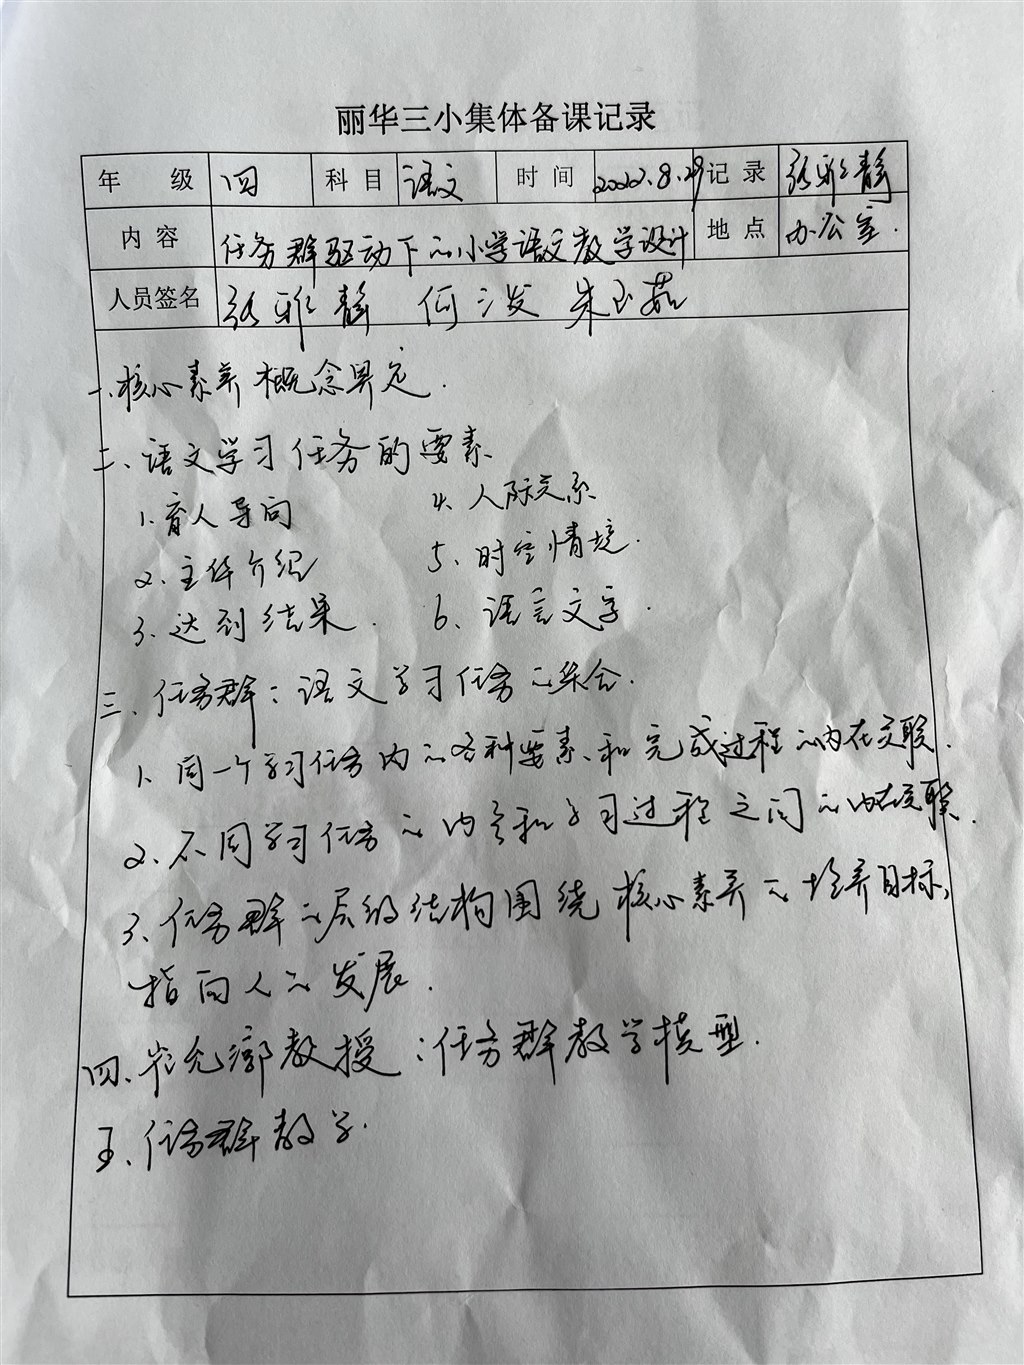 丽华三小集体备课记录
年 级 四 科 目 语文 时 间 2022.8.29 记 录 张雅静
内 容 任务群驱动下的小学语文教学设计 地 点 办公室.
人员签名 张雅静 何 朱玉茹
一、核心素养概念界定.
二、语文学习任务的要素
1.育人导向 4.人际关系
2.主体介绍 5、时空情境.
3.达到结果. 6、语言文字.
三、任务群:语文学习任务的集合.
1、同一个学习任务内的各种要素、和完成过程的内在关联.
2、不同学习任务的内容和学习过程之间的内在关联.
3、任务群的层级结构围绕核心素养的培养目标,
指向人的发展.
四、崔允漷教授:任务群教学模型.
五、任务群教学.